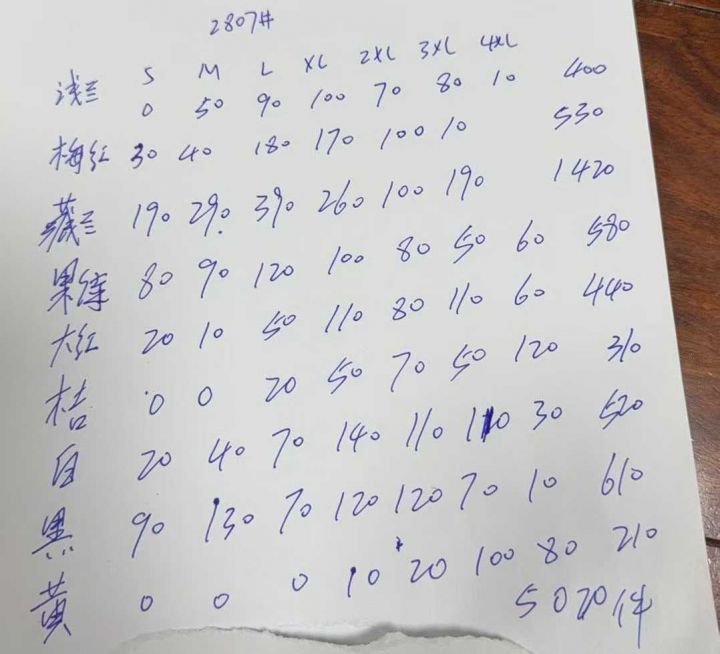 2807#
S M L XL 2XL 3XL 4XL
浅兰 0 50 90 100 70 80 10 400
梅红 30 40 180 170 100 10 530
藏兰 190 290 390 260 100 190 1420
果绿 80 90 120 100 80 50 60 580
大红 20 10 50 110 80 110 60 440
桔 0 0 20 50 70 50 120 310
白 20 40 70 140 110 110 30 520
黑 90 130 70 120 120 70 10 610
黄 0 0 0 10 20 100 80 210
5020件